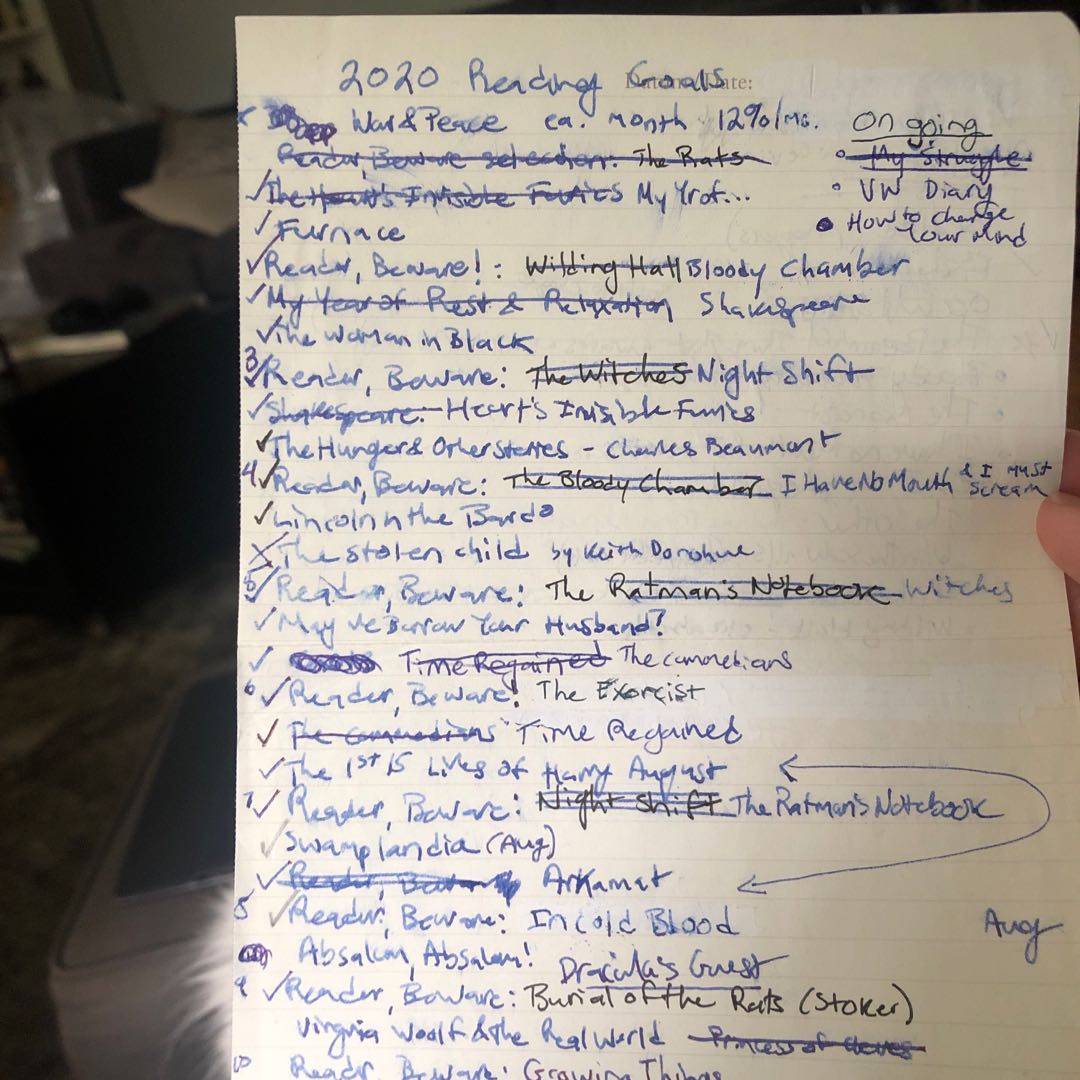 2020 Reading Goals
Date:
War & Peace ea. month 12%/mo.
On going
Reader, Beware selection: The Rats
My Struggle
The Heart's Invisible Furies My Prof...
VW Diary
Furnace
How to change Your Mind
Reader, Beware!: Wilding Hall Bloody Chamber
My Year of Rest & Relaxation Shakespeare
The Woman in Black
3 Reader, Beware: The Witches Night Shift
Shakespeare: Heart's Invisible Furies
The Hunger & Other stories - Charles Beaumont
4 Reader, Beware: The Bloody Chamber I Have No Mouth & I Must Scream
Lincoln n the Bardo
The Stolen Child by Keith Donohue
5 Reader, Beware: The Ratman's Notebook Witches
May We Borrow Your Husband?
Time Regained The commedians
6 Reader, Beware! The Exorcist
The commedians Time Regained
The 1st 15 Lives of Harry August
7 Reader, Beware: Night Shift The Ratman's Notebook
Swamplandia (Aug)
Reader, Beware Arkamat
8 Reader, Beware: In Cold Blood
Aug
Absalom, Absalom!
Dracula's Guest
9 Reader, Beware: Burial of the Rats (Stoker)
Virginia Woolf & the Real World Princess of Cleves
10 Reader, Beware: Growing Things